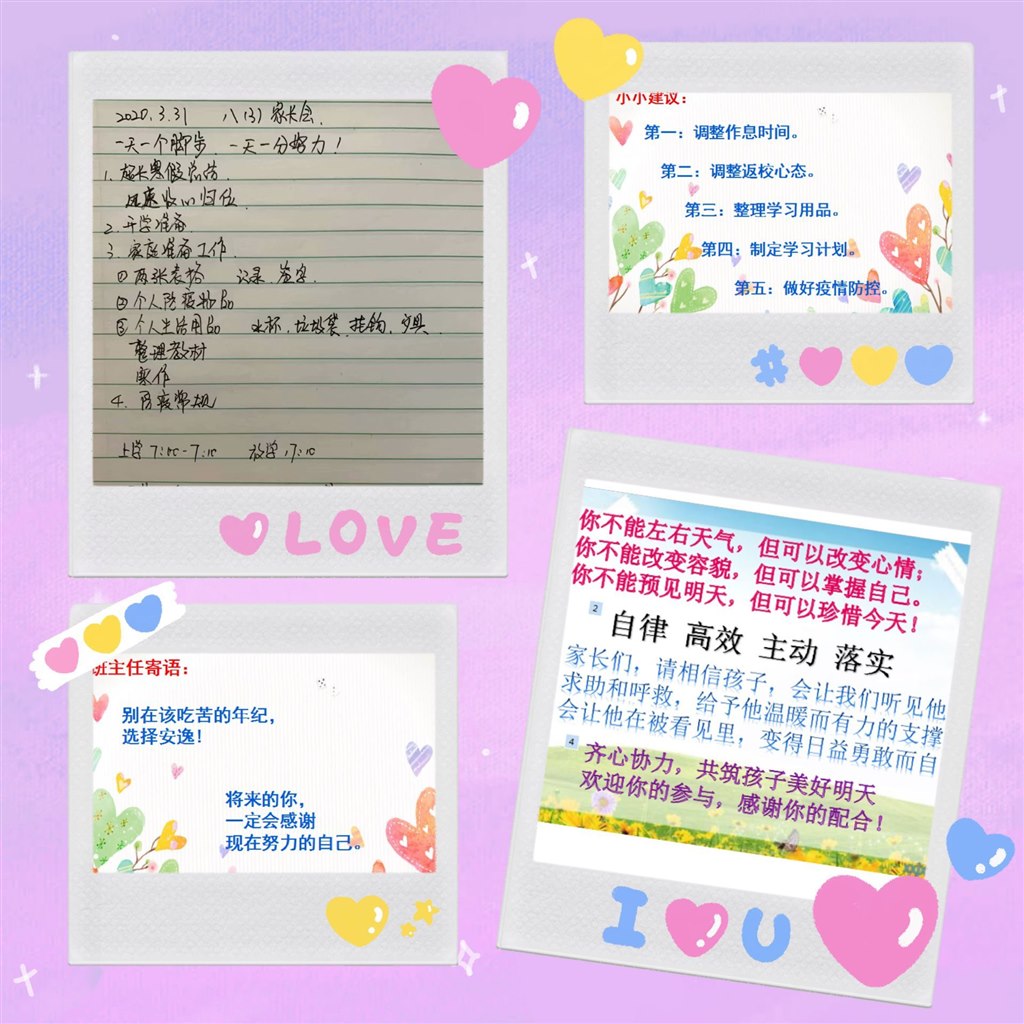 2020.3.31 八(3)家长会.
一天一个脚步.一天一分努力!
1.超长寒假总结
迅速收心归位.
2.开学准备
3.家庭准备工作.
①两张表格 记录.签字.
②个人防疫物品
③个人生活用品 水杯.垃圾袋.挂钩.文具.
整理教材
4.防疫常规
小小建议:
第一:调整作息时间。
第二:调整返校心态。
第三:整理学习用品。
第四:制定学习计划。
第五:做好疫情防控。
LOVE
班主任寄语:
别在该吃苦的年纪,
选择安逸!
将来的你,
一定会感谢
现在努力的自己。
你不能左右天气,但可以改变心情;
你不能改变容貌,但可以掌握自己。
你不能预见明天,但可以珍惜今天!
2
自律 高效 主动 落实
家长们,请相信孩子,会让我们听见他
求助和呼救,给予他温暖而有力的支撑
会让他在被看见里,变得日益勇敢而自
4
齐心协力,共筑孩子美好明天
欢迎你的参与,感谢你的配合!
I U